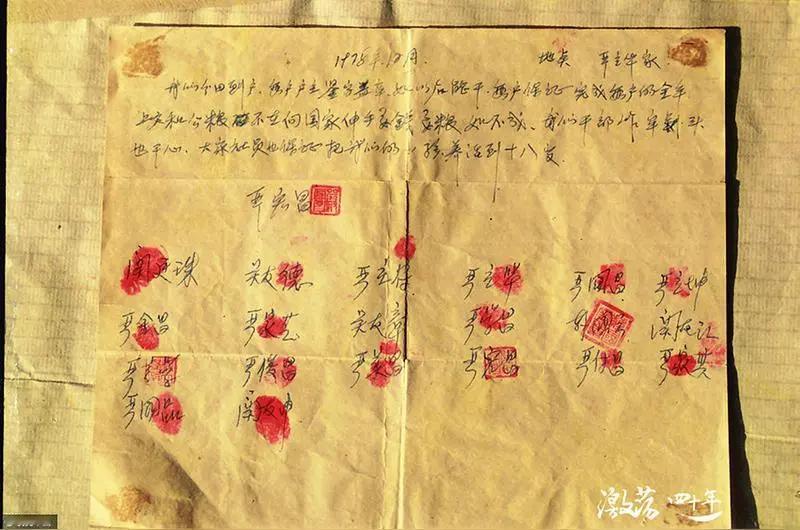 1978年12月. 地点 严立华家
我们分田到户,每户户主签字盖章,如以后能干,每户保证完成每户的全年
上交和公粮 不在向国家伸手要钱要粮 如不成,我们干部作牢 头
也干心,大家社员也保证把我们的小孩养活到十八岁.
严宏昌
关廷珠 关友德 严立符 严立华 严国昌 严立坤
严金昌 严家芝 关友章 严学昌 韩国云 关友江
严立学 严俊昌 严美昌 严宏昌 严付昌 严家其
严国品 关友申
激荡四十年